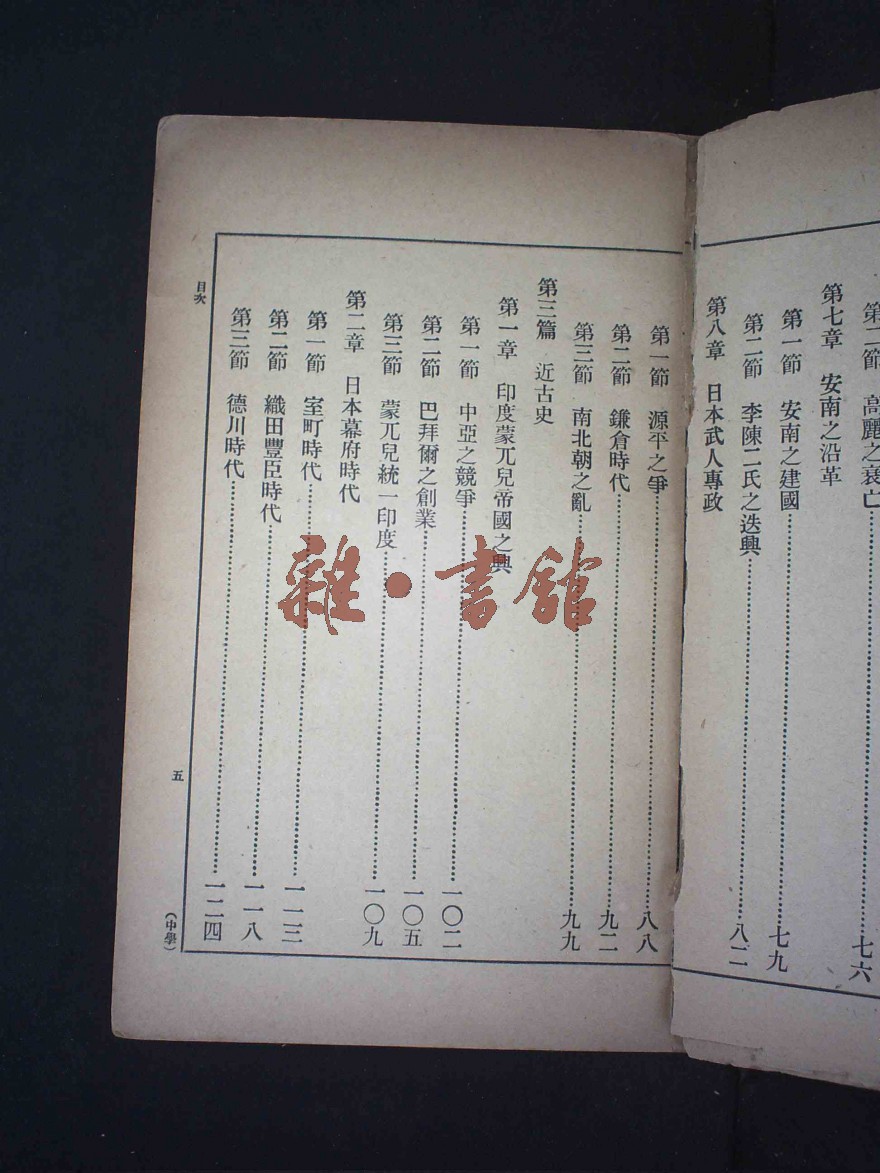 第二節 高麗之衰亡……七六
第七章 安南之沿革
第一節 安南之建國……七九
第二節 李陳二氏之迭興……八二
第八章 日本武人專政
第一節 源平之爭……八八
第二節 鎌倉時代……九二
第三節 南北朝之亂……九九
第三篇 近古史
第一章 印度蒙兀兒帝國之興
第一節 中亞之競爭……一〇二
第二節 巴拜爾之創業……一〇五
第三節 蒙兀兒統一印度……一〇九
第二章 日本幕府時代
第一節 室町時代……一一三
第二節 織田豐臣時代……一一八
第三節 德川時代……一二四
目次
五
(中學)
雜·書館